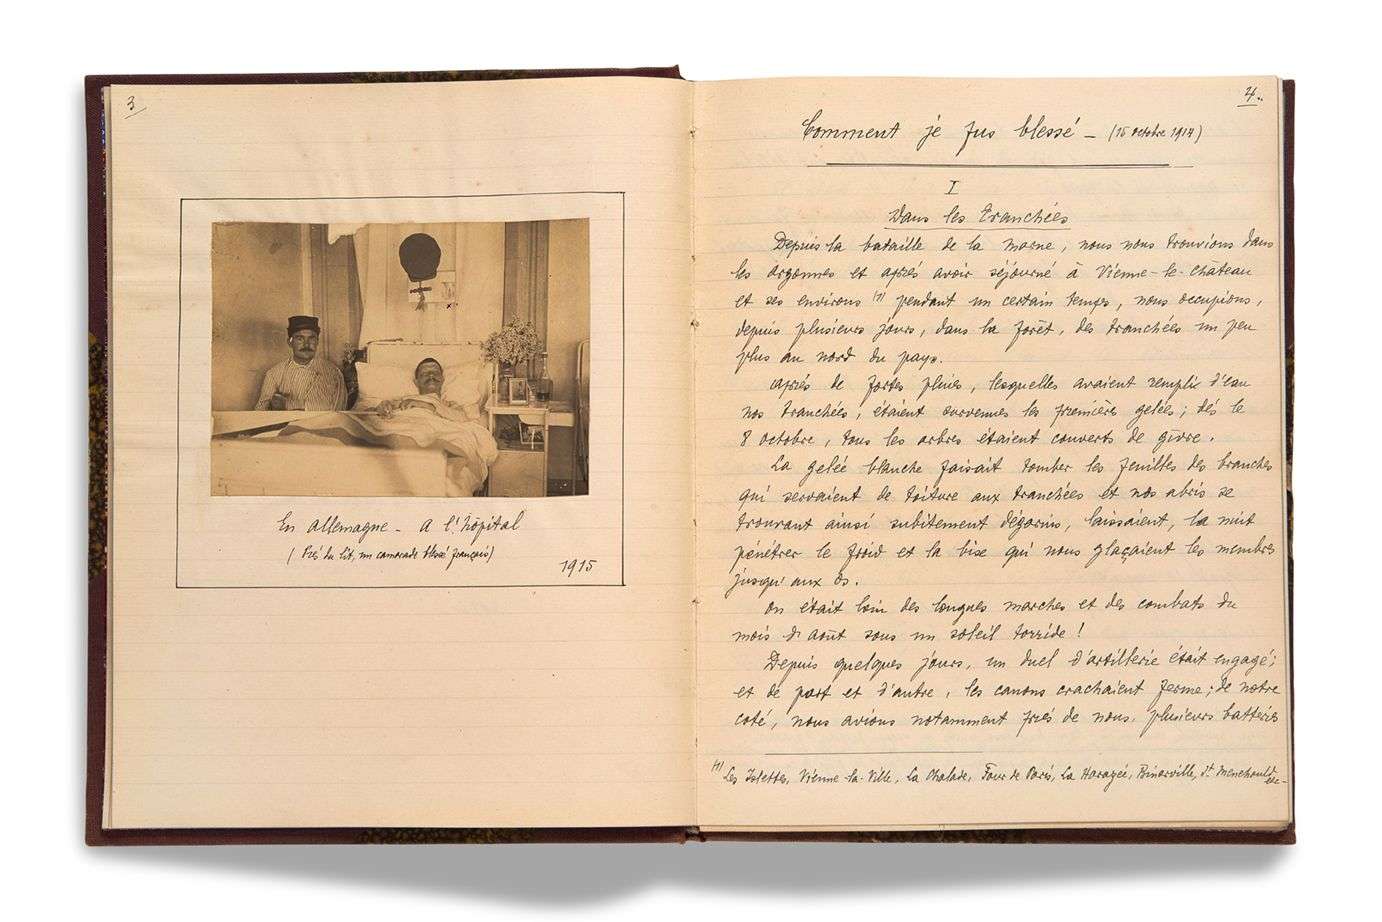 3
En Allemagne - A l'hôpital
(Près du lit, un camarade blessé français)
1915
4.
Comment je fus blessé - (15 octobre 1914)
I
Dans les Tranchées
Depuis la bataille de la Marne, nous nous trouvions dans
les Argonnes et après avoir séjourné à Vienne-le-Château
et ses environs (1) pendant un certain temps, nous occupions,
depuis plusieurs jours, dans la forêt, des tranchées un peu
plus au nord du pays.
Après de fortes pluies, lesquelles avaient rempli d'eau
nos tranchées, étaient survenues les premières gelées; dès le
8 octobre, tous les arbres étaient couverts de givre.
La gelée blanche faisait tomber les feuilles des branches
qui servaient de toiture aux tranchées et nos abris se
trouvant ainsi subitement dégarnis, laissaient, la nuit
pénétrer le froid et la bise qui nous glaçaient les membres
jusqu'aux os.
On était loin des longues marches et des combats du
mois d'Août sous un soleil torride!
Depuis quelques jours, un duel d'artillerie était engagé;
et de part et d'autre, les canons crachaient ferme; de notre
coté, nous avions notamment près de nous, plusieurs batteries
(1) Les Islettes, Vienne-la-Ville, La Chalade, Four de Paris, La Harazée, Binarville, Ste Menehould